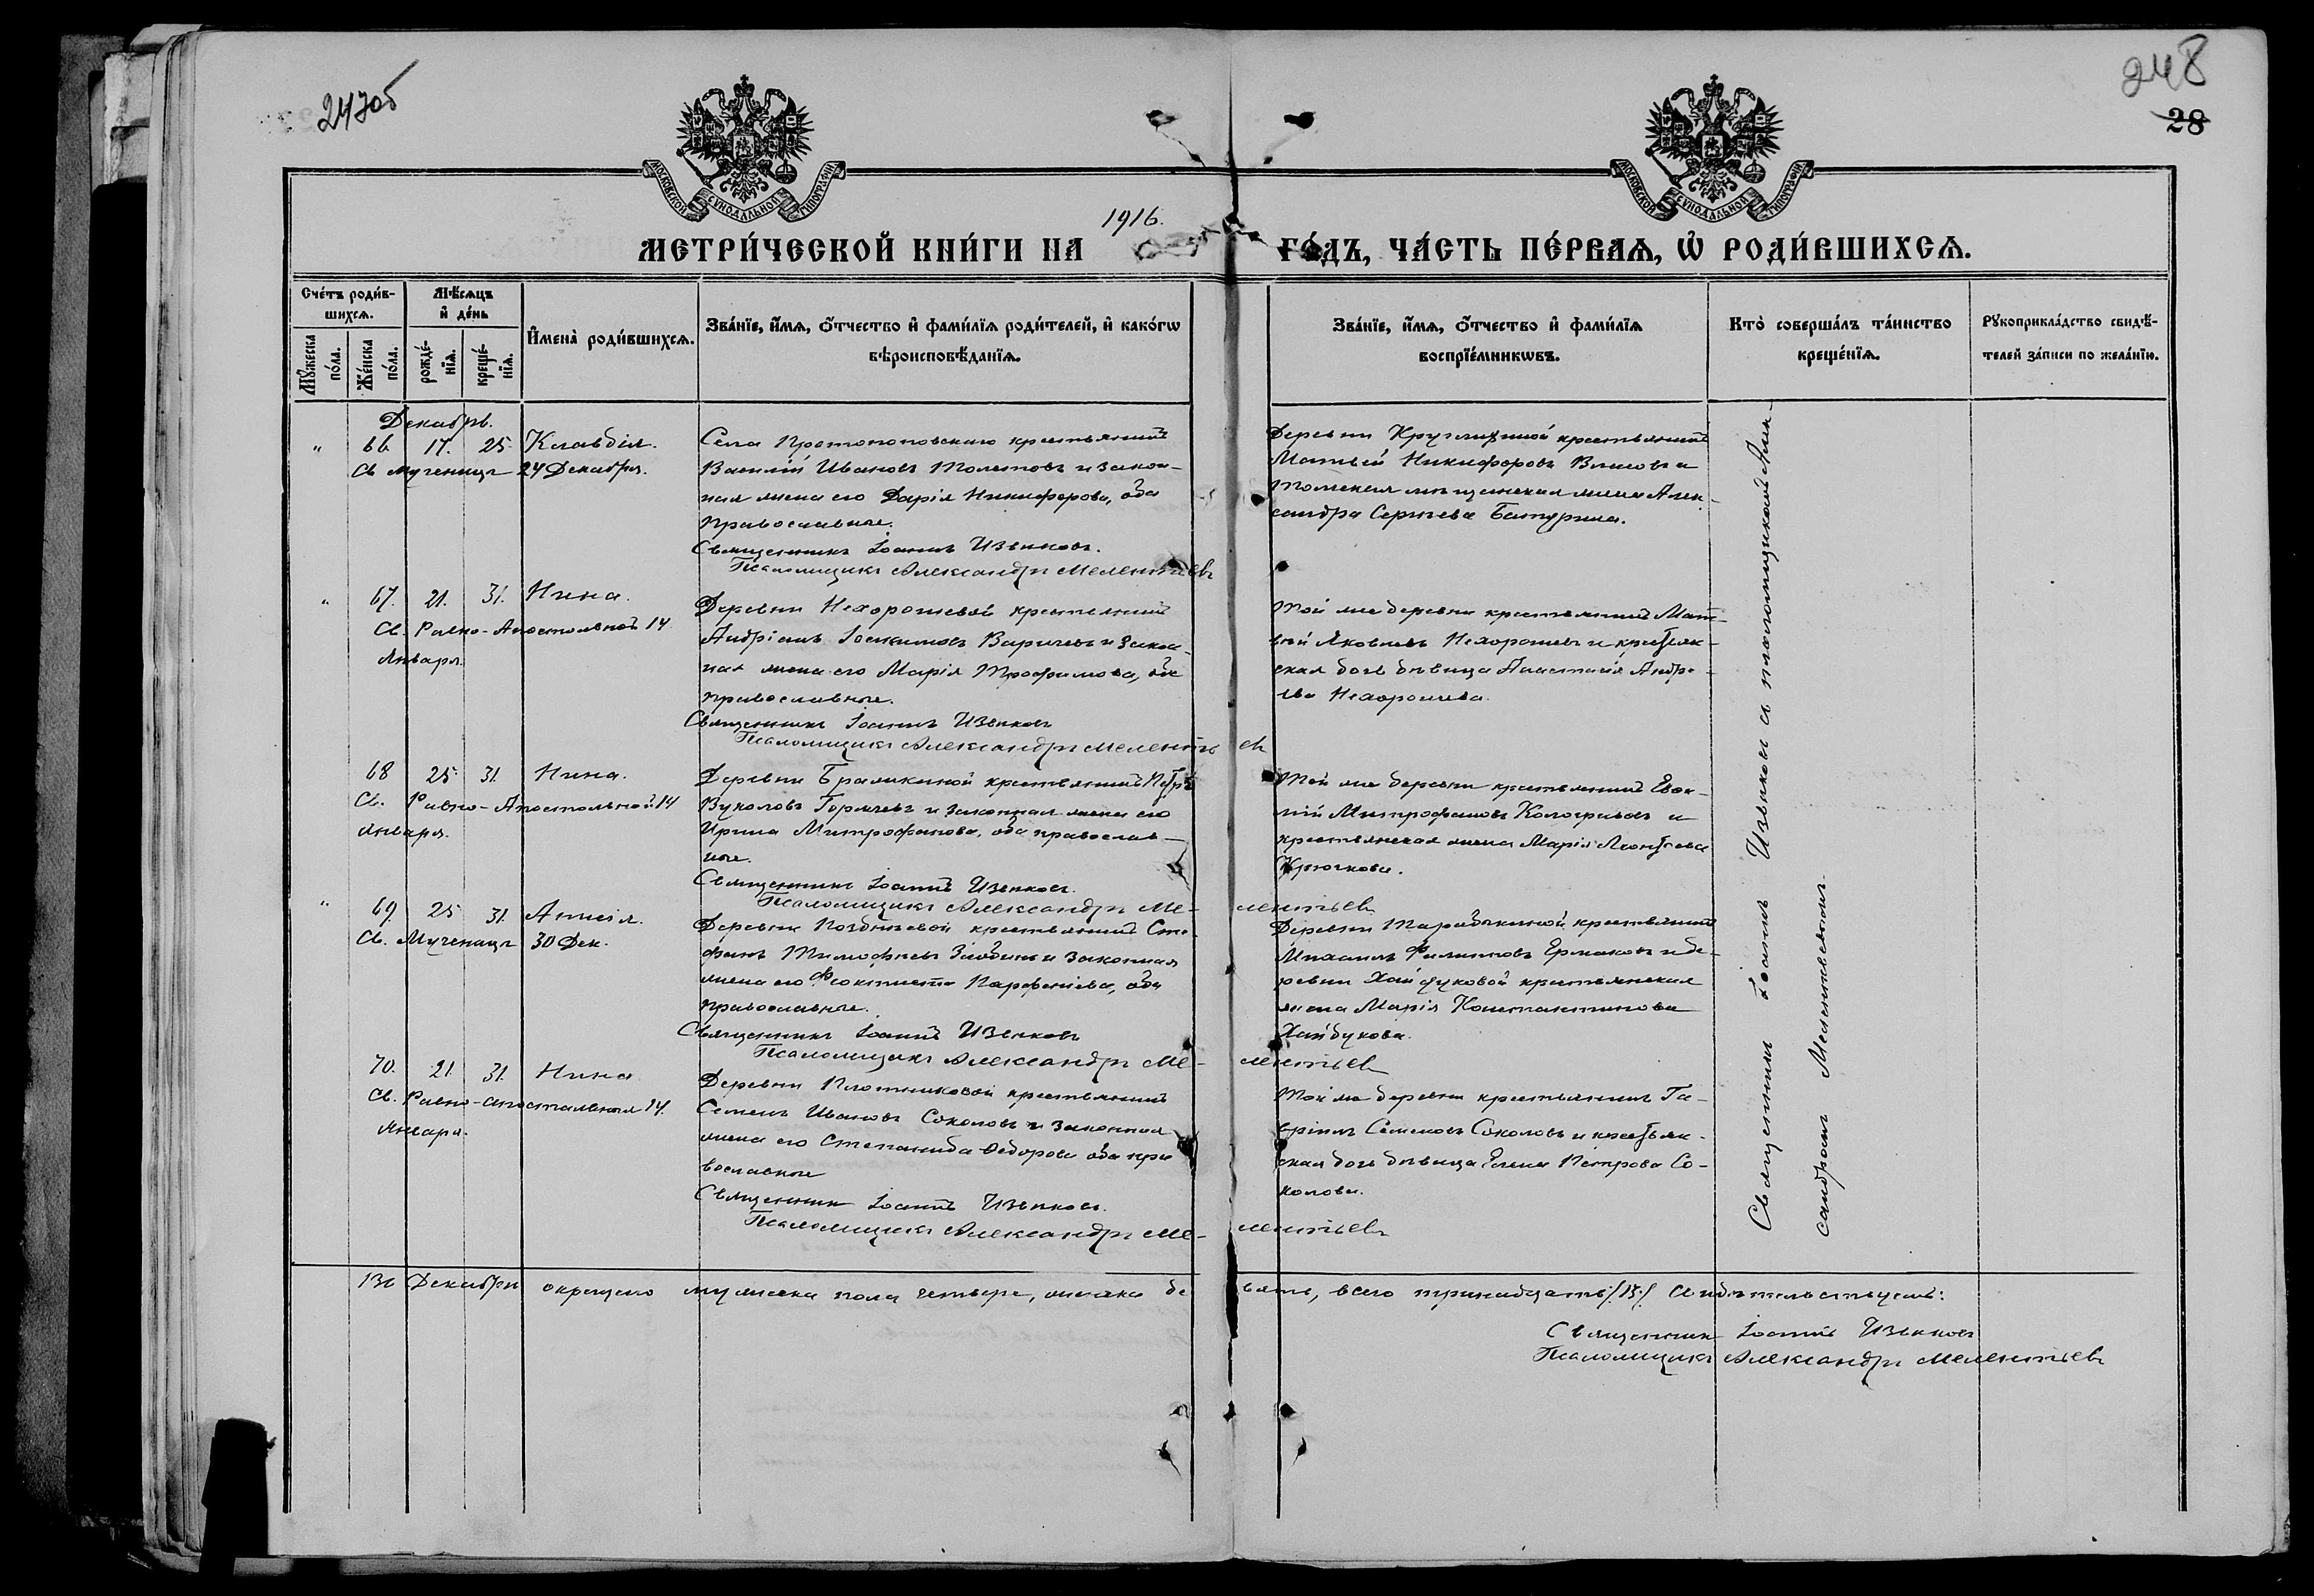 247об
248
28
МОСКОВСКОЙ СУНОДАЛЬНОЙ ТИПОГРАФІИ
МОСКОВСКОЙ СУНОДАЛЬНОЙ ТИПОГРАФІИ
1916.
МЕТРИ́ЧЕСКОЙ КНИ́ГИ НА ГО́ДЪ, ЧА́СТЬ ПЕ́РВАЯ, Ѽ РОДИ́ВШИХСЯ.
Сче́тъ роди́в-
шихся.
Мѣ́сяцъ
и҆ де́нь
Мꙋ́жеска
по́ла.
Же́нска
по́ла.
рожде́-
нїя.
креще́-
нїя.
И҆мена̀ роди́вшихся.
Зва́нїе, и҆́мя, ѻ҆́тчество и҆ фами́лїя роди́телей, и҆ како́гѡ
вѣроисповѣ́данїя.
Зва́нїе, и҆́мя, ѻ҆́тчество и҆ фами́лїя
воспрїе́мникѡвъ.
Кто̀ соверша́лъ та́инство
креще́нїя.
Рꙋкоприкла́дство свидѣ́-
телей за́писи по жела́нїю.
Декабрь.
" 66 17. 25. Клавдія.
Св мученицы 24 Декабря.
Села Протопоповскаго крестьянинъ
Василій Ивановъ Толстовъ и закон-
ная жена его Дарія Никифорова, оба
православные.
Священникъ Іоаннъ Извѣковъ.
Псаломщикъ Александръ Мелентьевъ
Деревни крестьянинъ
Матвѣй Никифоровъ и
Томская мѣщанская жена Алек-
сандра Сергѣева Батурина.
" 67. 21. 31. Нина.
Св. Равно-Апостольной 14
Января.
Деревни Нехорошевой крестьянинъ
Андріанъ Іоакимовъ и закон-
ная жена его Марія Трофимова, оба
православные.
Священникъ Іоаннъ Извѣковъ
Псаломщикъ Александръ Мелентьевъ
Той же деревни крестьянинъ Мат-
вѣй Яковлевъ Нехорошевъ и крестьян-
ская дочь дѣвица Анастасія Андре-
ева Нехорошева.
68 25 31. Нина.
Св. Равно-Апостольной 14
Января.
Деревни крестьянинъ Петръ
Вуколовъ и законная жена его
Ирина Митрофанова, оба православ-
ные.
Священникъ Іоаннъ Извѣковъ.
Псаломщикъ Александръ Мелентьевъ
Той же деревни крестьянинъ
Митрофановъ и
крестьянская жена Марія Леонтьева
Крючкова.
" 69. 25 31. Анисія.
Св. Мученицы 30 Дек.
Деревни Позднѣевой крестьянинъ Сте-
фанъ Тимофѣевъ и законная
жена его Феоктиста Парфеніева, оба
православные.
Священникъ Іоаннъ Извѣковъ
Псаломщикъ Александръ Мелентьевъ
Деревни крестьянинъ
Михаилъ Филипповъ Ермаковъ и де-
ревни Хайдуковой крестьянская
жена Марія Константинова
Хайдукова.
70. 21. 31. Нина
Св. Равно-Апостольныя 14.
Января.
Деревни Плотниковой крестьянинъ
Семенъ Ивановъ Соколовъ и законная
жена его Степанида Ѳедорова оба пра
вославные
Священник Іоаннъ Извѣковъ.
Псаломщикъ Александръ Мелентьевъ
Той же деревни крестьянинъ Га-
вріилъ Семеновъ Соколовъ и крестьян-
ская дочь дѣвица Елена Петрова Со-
колова.
Священникъ Іоаннъ Извѣковъ съ псаломщикомъ Алек-
сандромъ Мелентьевымъ.
Декабрѣ окрещено мужеска пола четыре, женска де вять, всего тринадцать /13/ свидѣтельствуемъ:
Священникъ Іоаннъ Извѣковъ
Псаломщикъ Александръ Мелентьевъ